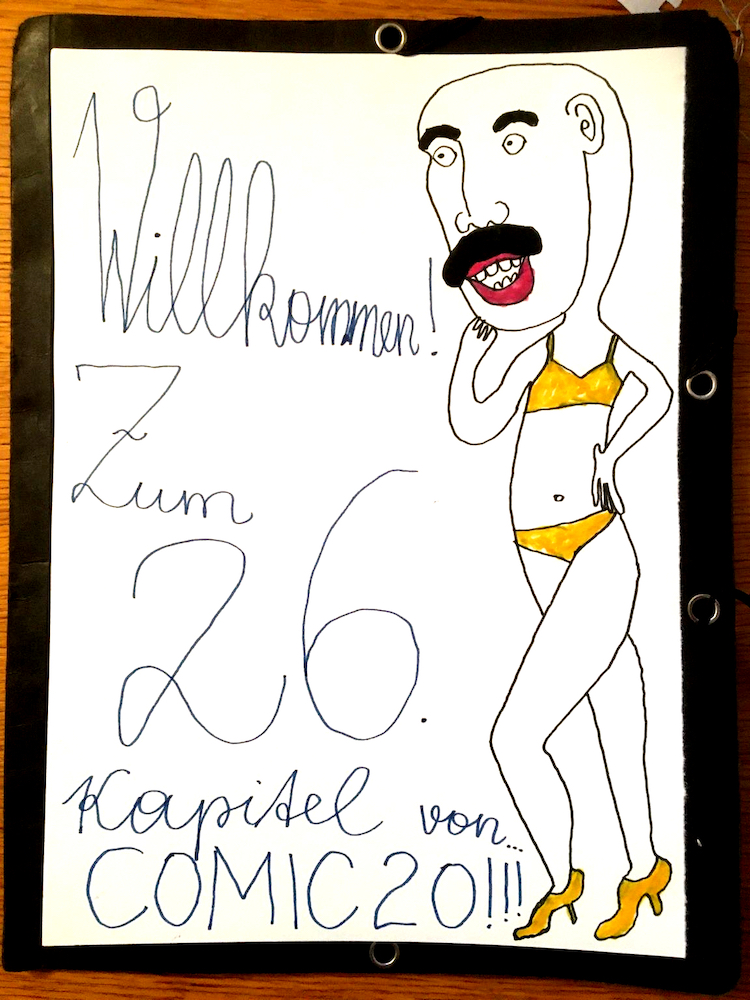 Willkommen!
Zum
26.
Kapitel von...
COMIC20!!!